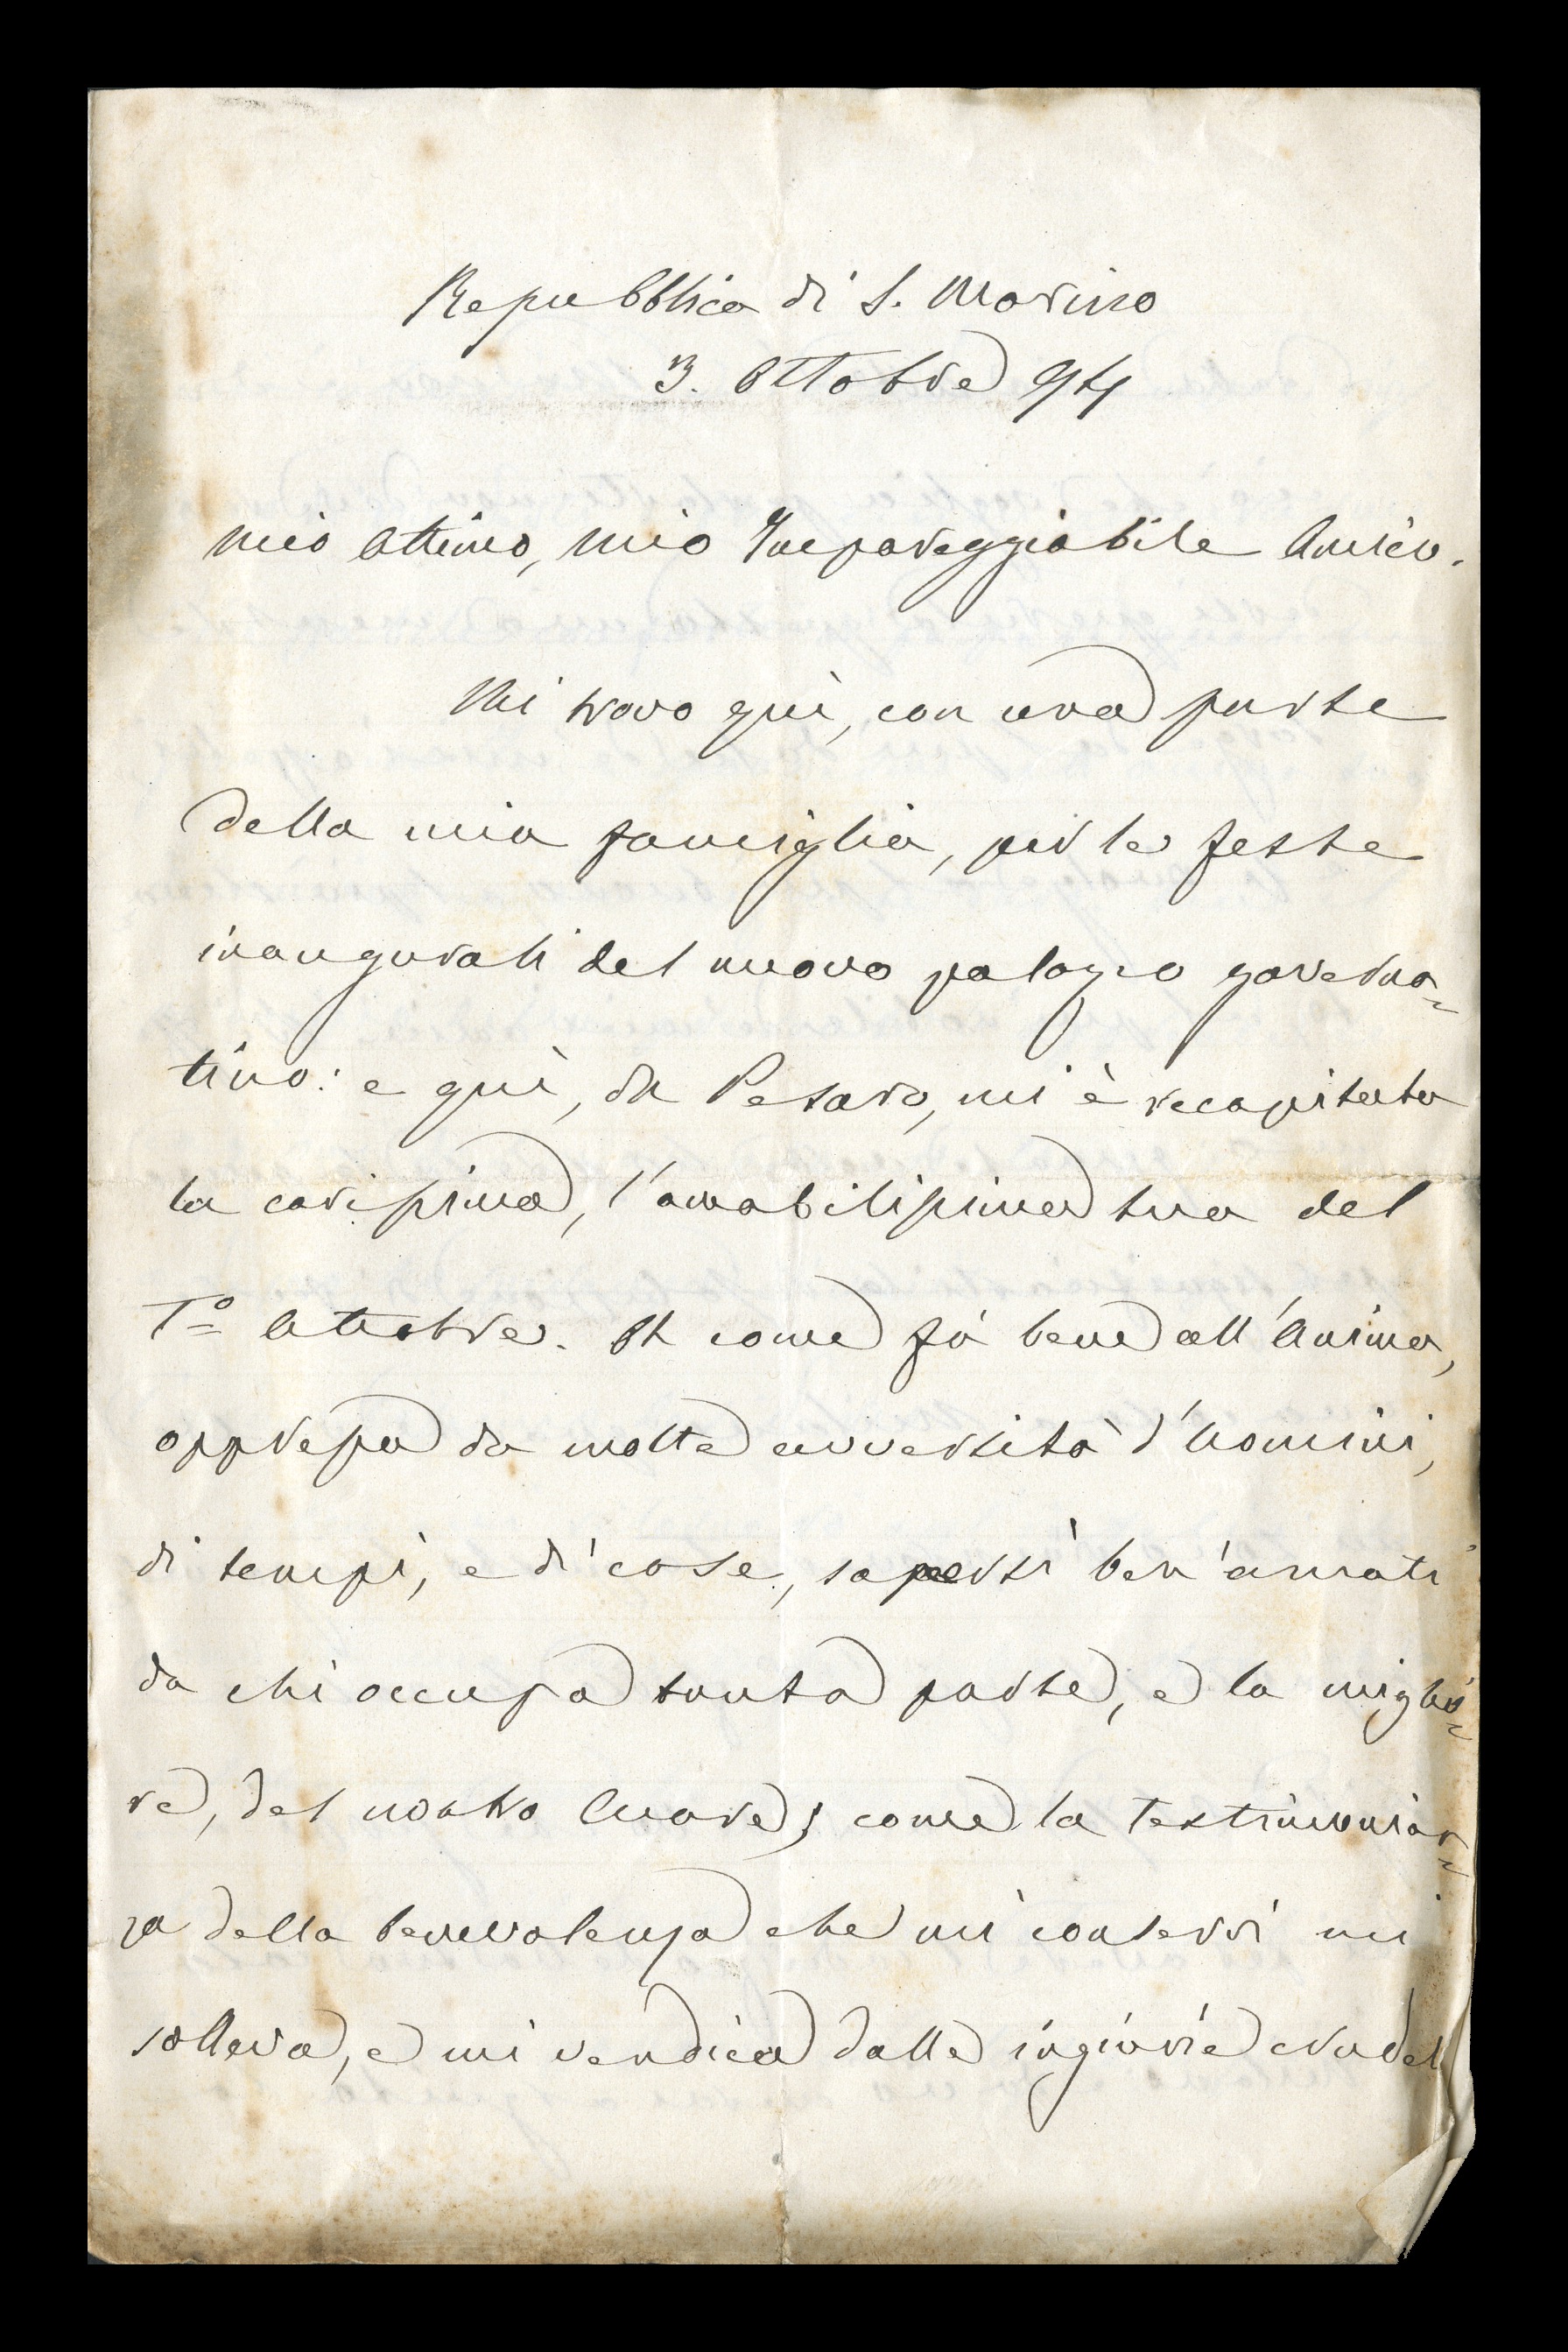 Repubblica di S. Marino
3. Ottobre 94
Mio Ottimo, Mio Impareggiabile Amico.
Mi trovo quì, con una parte
della mia famiglia, per le feste
inaugurali del nuovo palazzo governa=
tivo: e quì, da Pesaro, mi è recapitata
la carissima, l'amabilissima tua del
1º Ottobre. Oh come fà bene all'Anima,
oppressa da molte avversità d'Uomini,
di tempi, e di cose, sapersi ben'amati
da chi occupa tanta parte, e la miglio=
re, del nostro Cuore; come la testimonian=
za della benevolenza che mi conservi mi
solleva, e mi vendica dalle ingiurie crudel